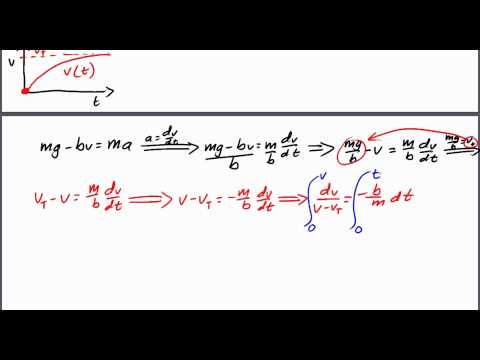 v_T
v
v(t)
t
mg - bv = ma ⟹ (a = dv/dt) (mg - bv)/b = m/b dv/dt ⟹ mg/b - v = m/b dv/dt ⟹ (mg/b = v_T)
v_T - v = m/b dv/dt ⟹ v - v_T = -m/b dv/dt ⟹ ∫₀^v dv/(v - v_T) = ∫₀^t -b/m dt